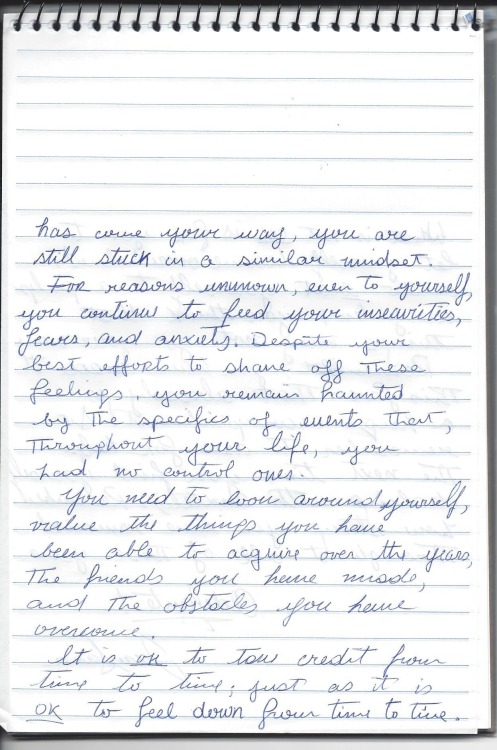 has come your way, you are
still stuck in a similar mindset.
For reasons unknown, even to yourself,
you continue to feed your insecurities,
fears, and anxiety. Despite your
best efforts to shake off these
feelings, you remain haunted
by the specifics of events that,
throughout your life, you
had no control over.
You need to look around yourself,
value the things you have
been able to acquire over the years,
the friends you have made,
and the obstacles you have
overcome.
It is ok to take credit from
time to time; just as it is
OK to feel down from time to time.